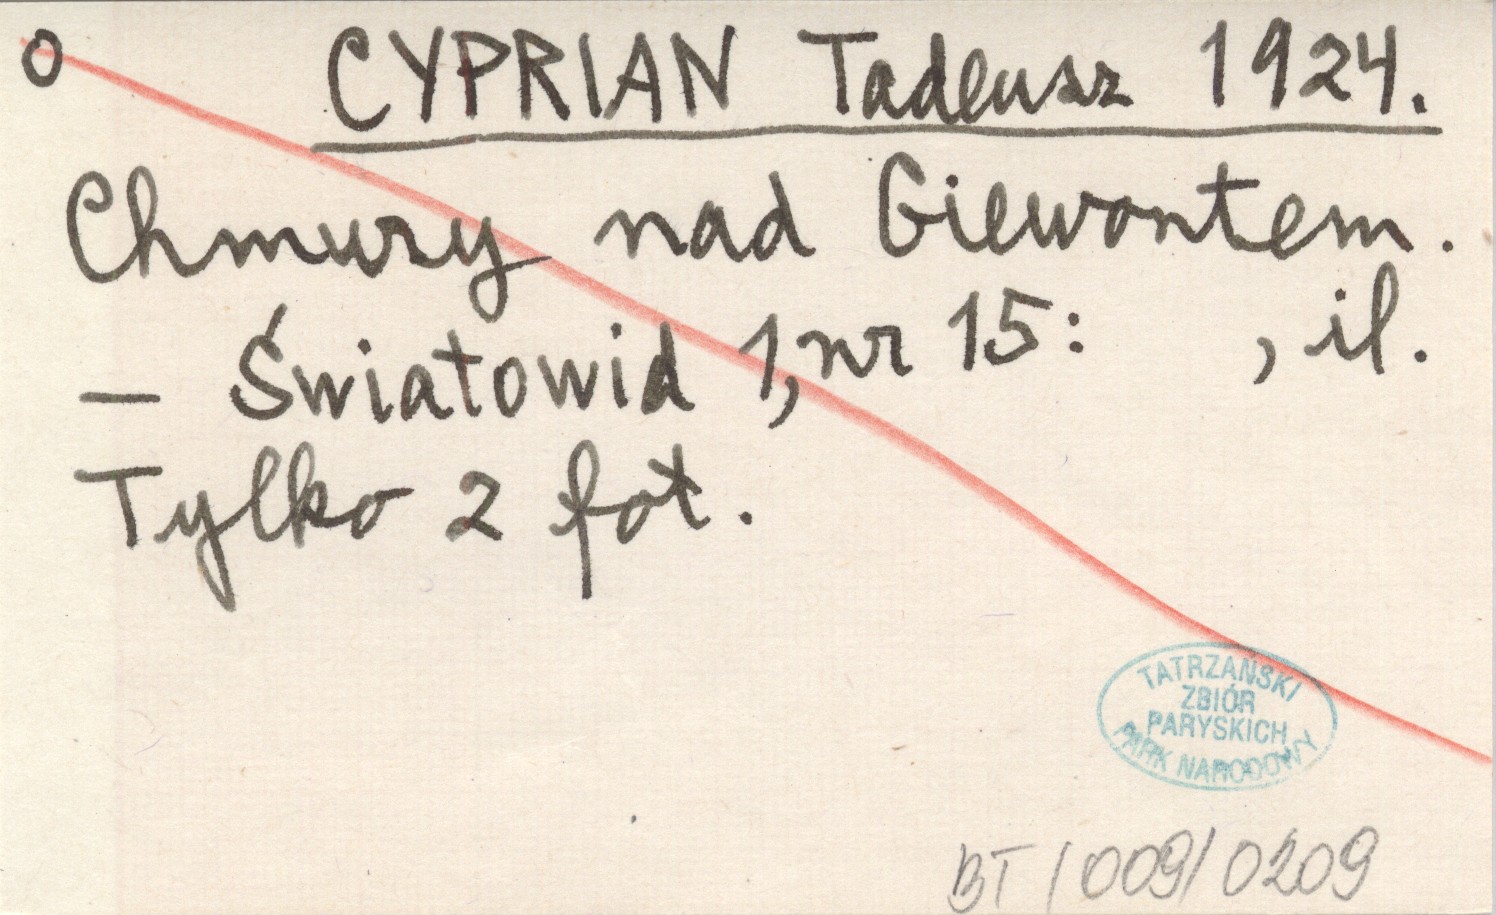 O CYPRIAN Tadeusz 1924.
Chmury nad Giewontem.
— Światowid 1, nr 15: , il.
Tylko 2 fot.
TATRZAŃSKI
ZBIÓR
PARYSKICH
PARK NARODOWY
BT/009/0209